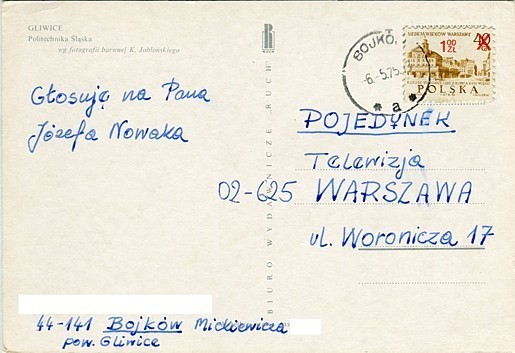 GLIWICE
Politechnika Śląska
wg fotografii barwnej K. Jabłońskiego
Głosuję na Pana
Józefa Nowaka
44-141 Bojków Mickiewicza
pow. Gliwice
BIURO WYDAWNICZE „RUCH”
BOJKÓW
-6.-5.75
* a *
SIEDEM WIEKÓW WARSZAWY
40
1,00
ZŁ
POLSKA
POJEDYNEK
Telewizja
02-625 WARSZAWA
ul. Woronicza 17